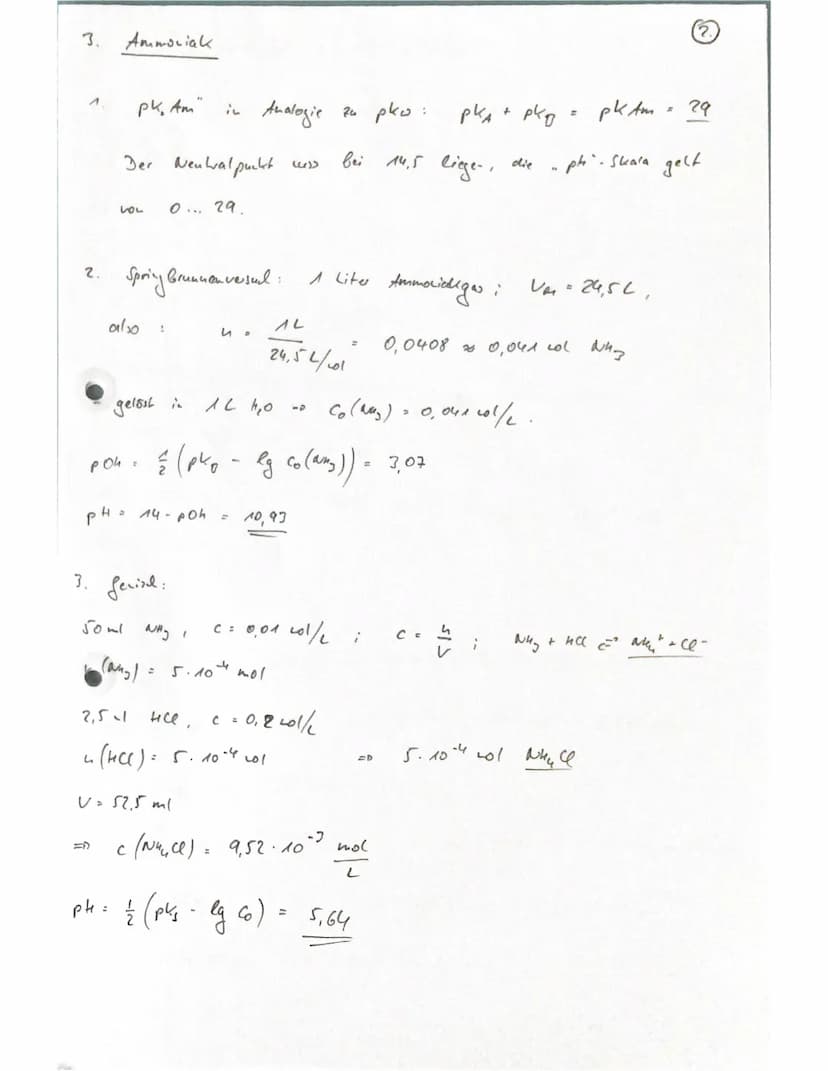 2.
3. Ammoniak
1. "pK, Am" in Analogie zu pKw: pKA + pKB = pK Am = 29
Der Neutralpunkt muss bei 14,5 liegen, die "pH"-Skala geht
von 0 ... 29.
2. Springbrunnenversuch: 1 Liter Ammoniakgas; VM = 24,5 L,
also: n = 1L / 24,5 L/mol = 0,0408 ≈ 0,041 mol NH3
gelöst in 1L H2O → C0(NH3) = 0,041 mol/L.
pOH = 1/2 (pKB - lg C0(NH3)) = 3,07
pH = 14 - pOH = 10,93
3. Gemisch:
50 ml NH3, C = 0,01 mol/L; C = n/V; NH3 + HCl ⇌ NH4+ + Cl-
n(NH3) = 5·10^-4 mol
2,5 ml HCl, C = 0,2 mol/L
n(HCl) = 5·10^-4 mol ⇒ 5·10^-4 mol NH4Cl
V = 52,5 ml
⇒ C(NH4Cl) = 9,52·10^-3 mol/L
pH = 1/2 (pKs - lg C0) = 5,64